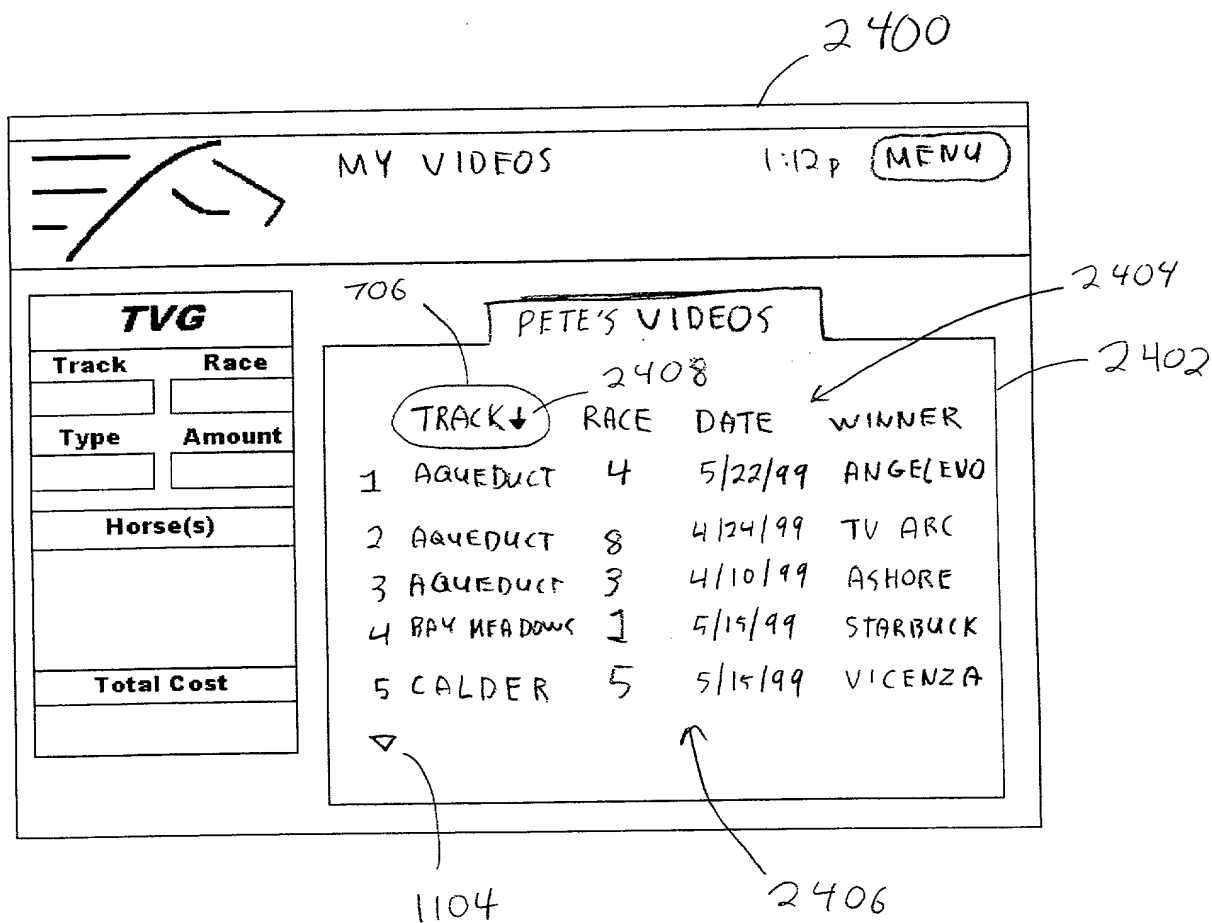 2400
MY VIDEOS 1:12p MENU
TVG
Track Race
Type Amount
Horse(s)
Total Cost
706
2404
PETE'S VIDEOS
2402
2408
TRACK↓ RACE DATE WINNER
1 AQUEDUCT 4 5/22/99 ANGELEVO
2 AQUEDUCT 8 4/24/99 TV ARC
3 AQUEDUCT 3 4/10/99 ASHORE
4 BAY MEADOWS 1 5/15/99 STARBUCK
5 CALDER 5 5/15/99 VICENZA
1104
2406